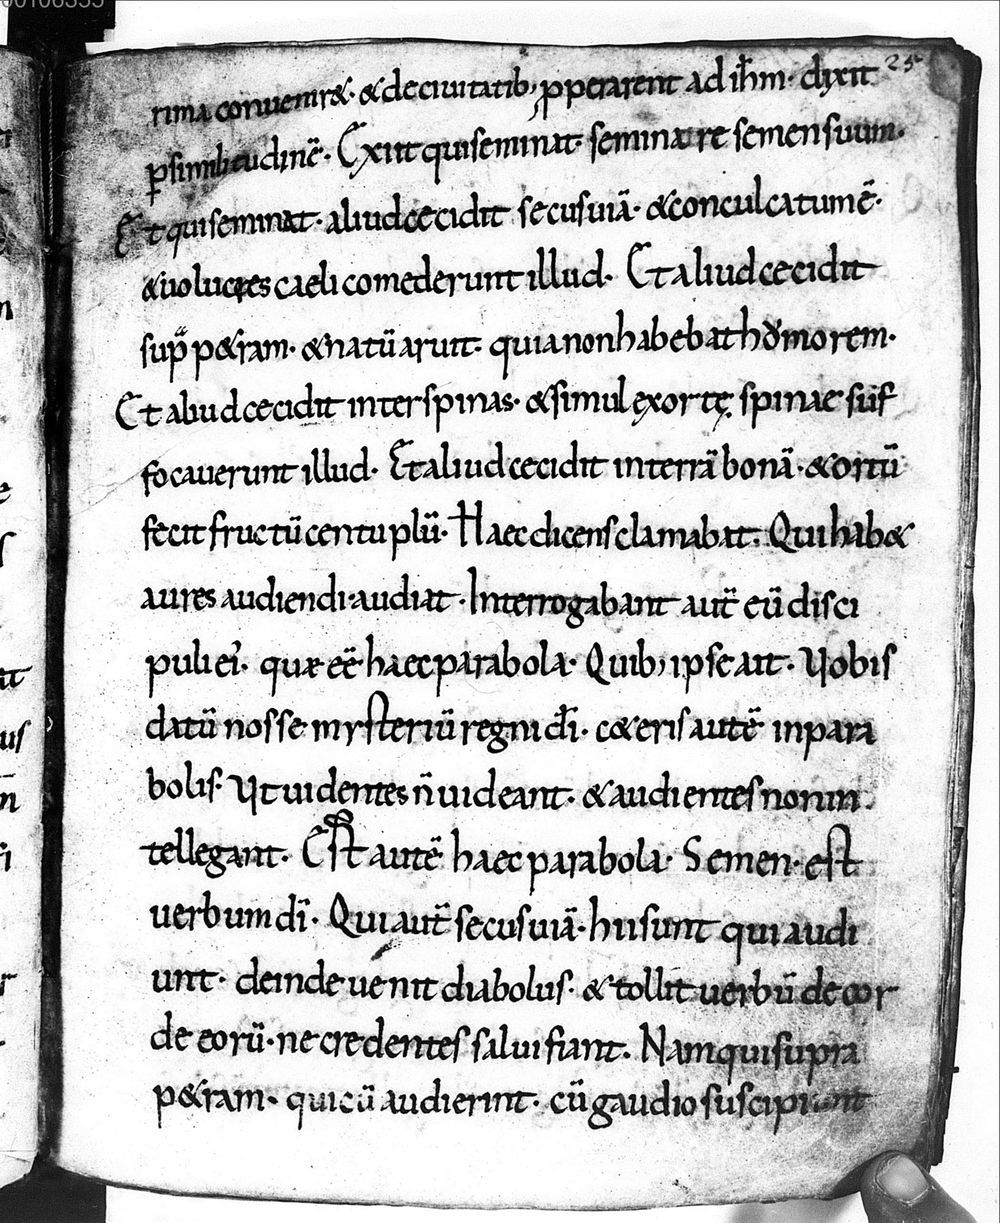 00106355
25
rima conuenir&. & de ciuitatib; pperarent ad ihm. dixit
p similitudinē. Exiit qui seminat. seminare semen suum.
Et qui seminat. aliud cecidit secus uiā. & conculcatum ē.
& uolucres caeli comederunt illud. Et aliud cecidit
sup p&ram. & natū aruit. quia non habebat hũmorem.
Et aliud cecidit inter spinas. & simul exortę spinae suf
focauerunt illud. Et aliud cecidit in terrā bonā. & ortū
fecit fructū centuplū. Haec dicens clamabat. Qui hab&
aures audiendi audiat. Interrogabant aut̄ eū disci
puli ei'. quae eē haec parabola. Quib; ipse ait. Uobis
datū nosse mysteriū regni dī. c&eris autē in para
bolis. Ut uidentes n̄ uideant. & audientes non in
tellegant. Est autē haec parabola. Semen. est
uerbum dī. Qui aut̄ secus uiā. hii sunt qui audi
unt. deinde uenit diabolus. & tollit uerbū de cor
de eorū. ne credentes salui fiant. Nam qui supra
p&ram. qui cū audierint. cū gaudio suscipiunt